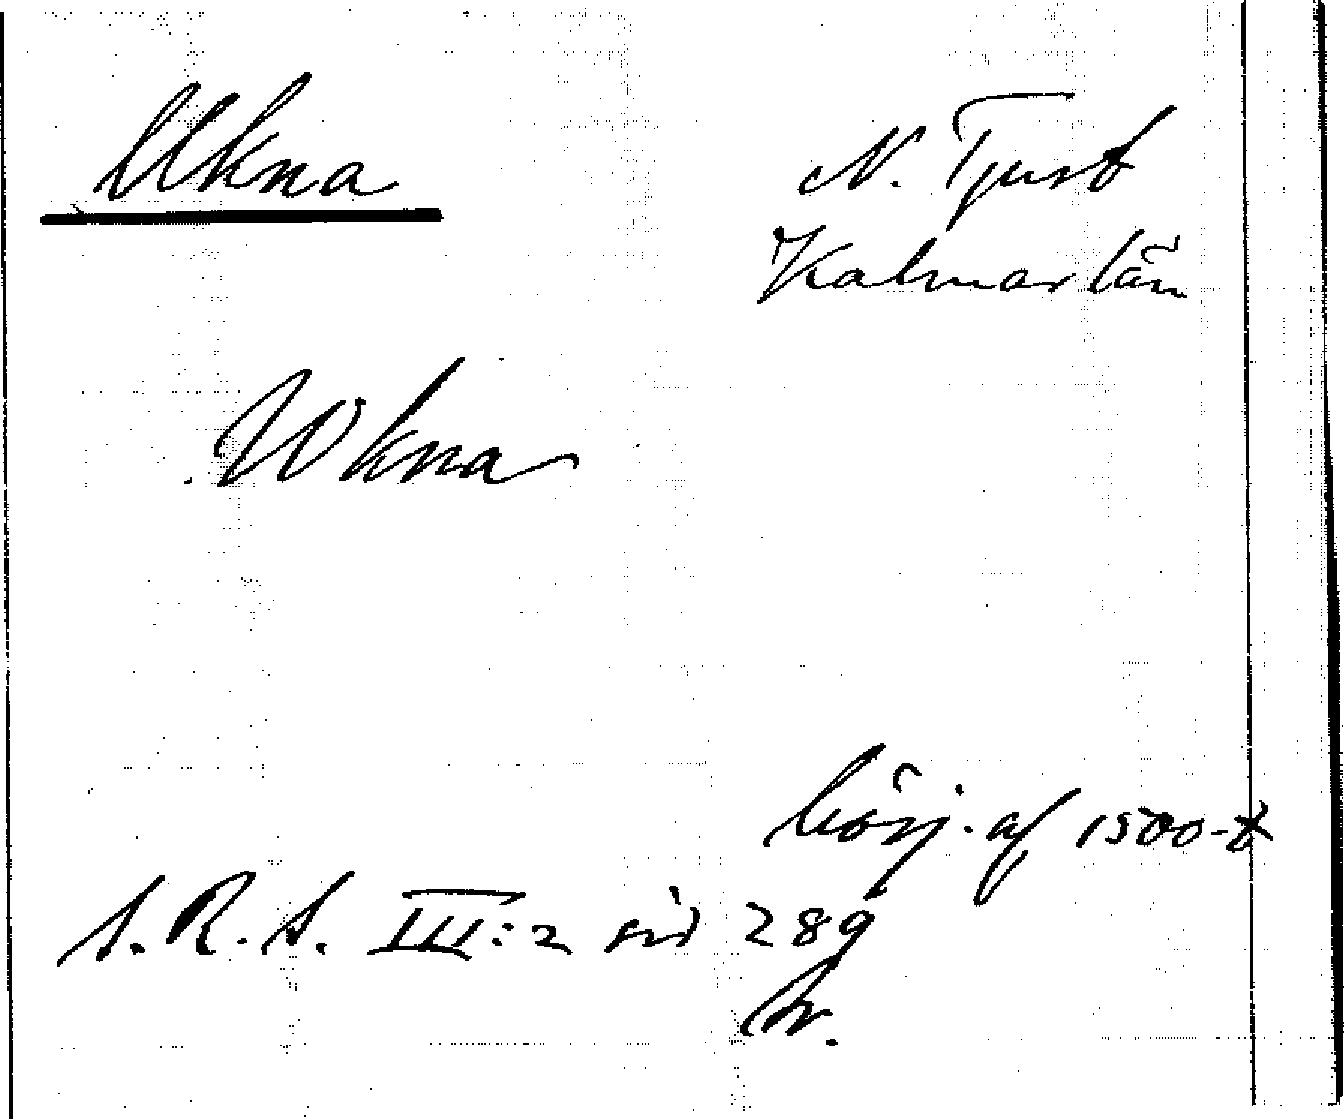 Ukna
N. Tjust
Kalmar län
Wkna
börj. af 1500-t
S. R. S. III:2 sid 289
tr.